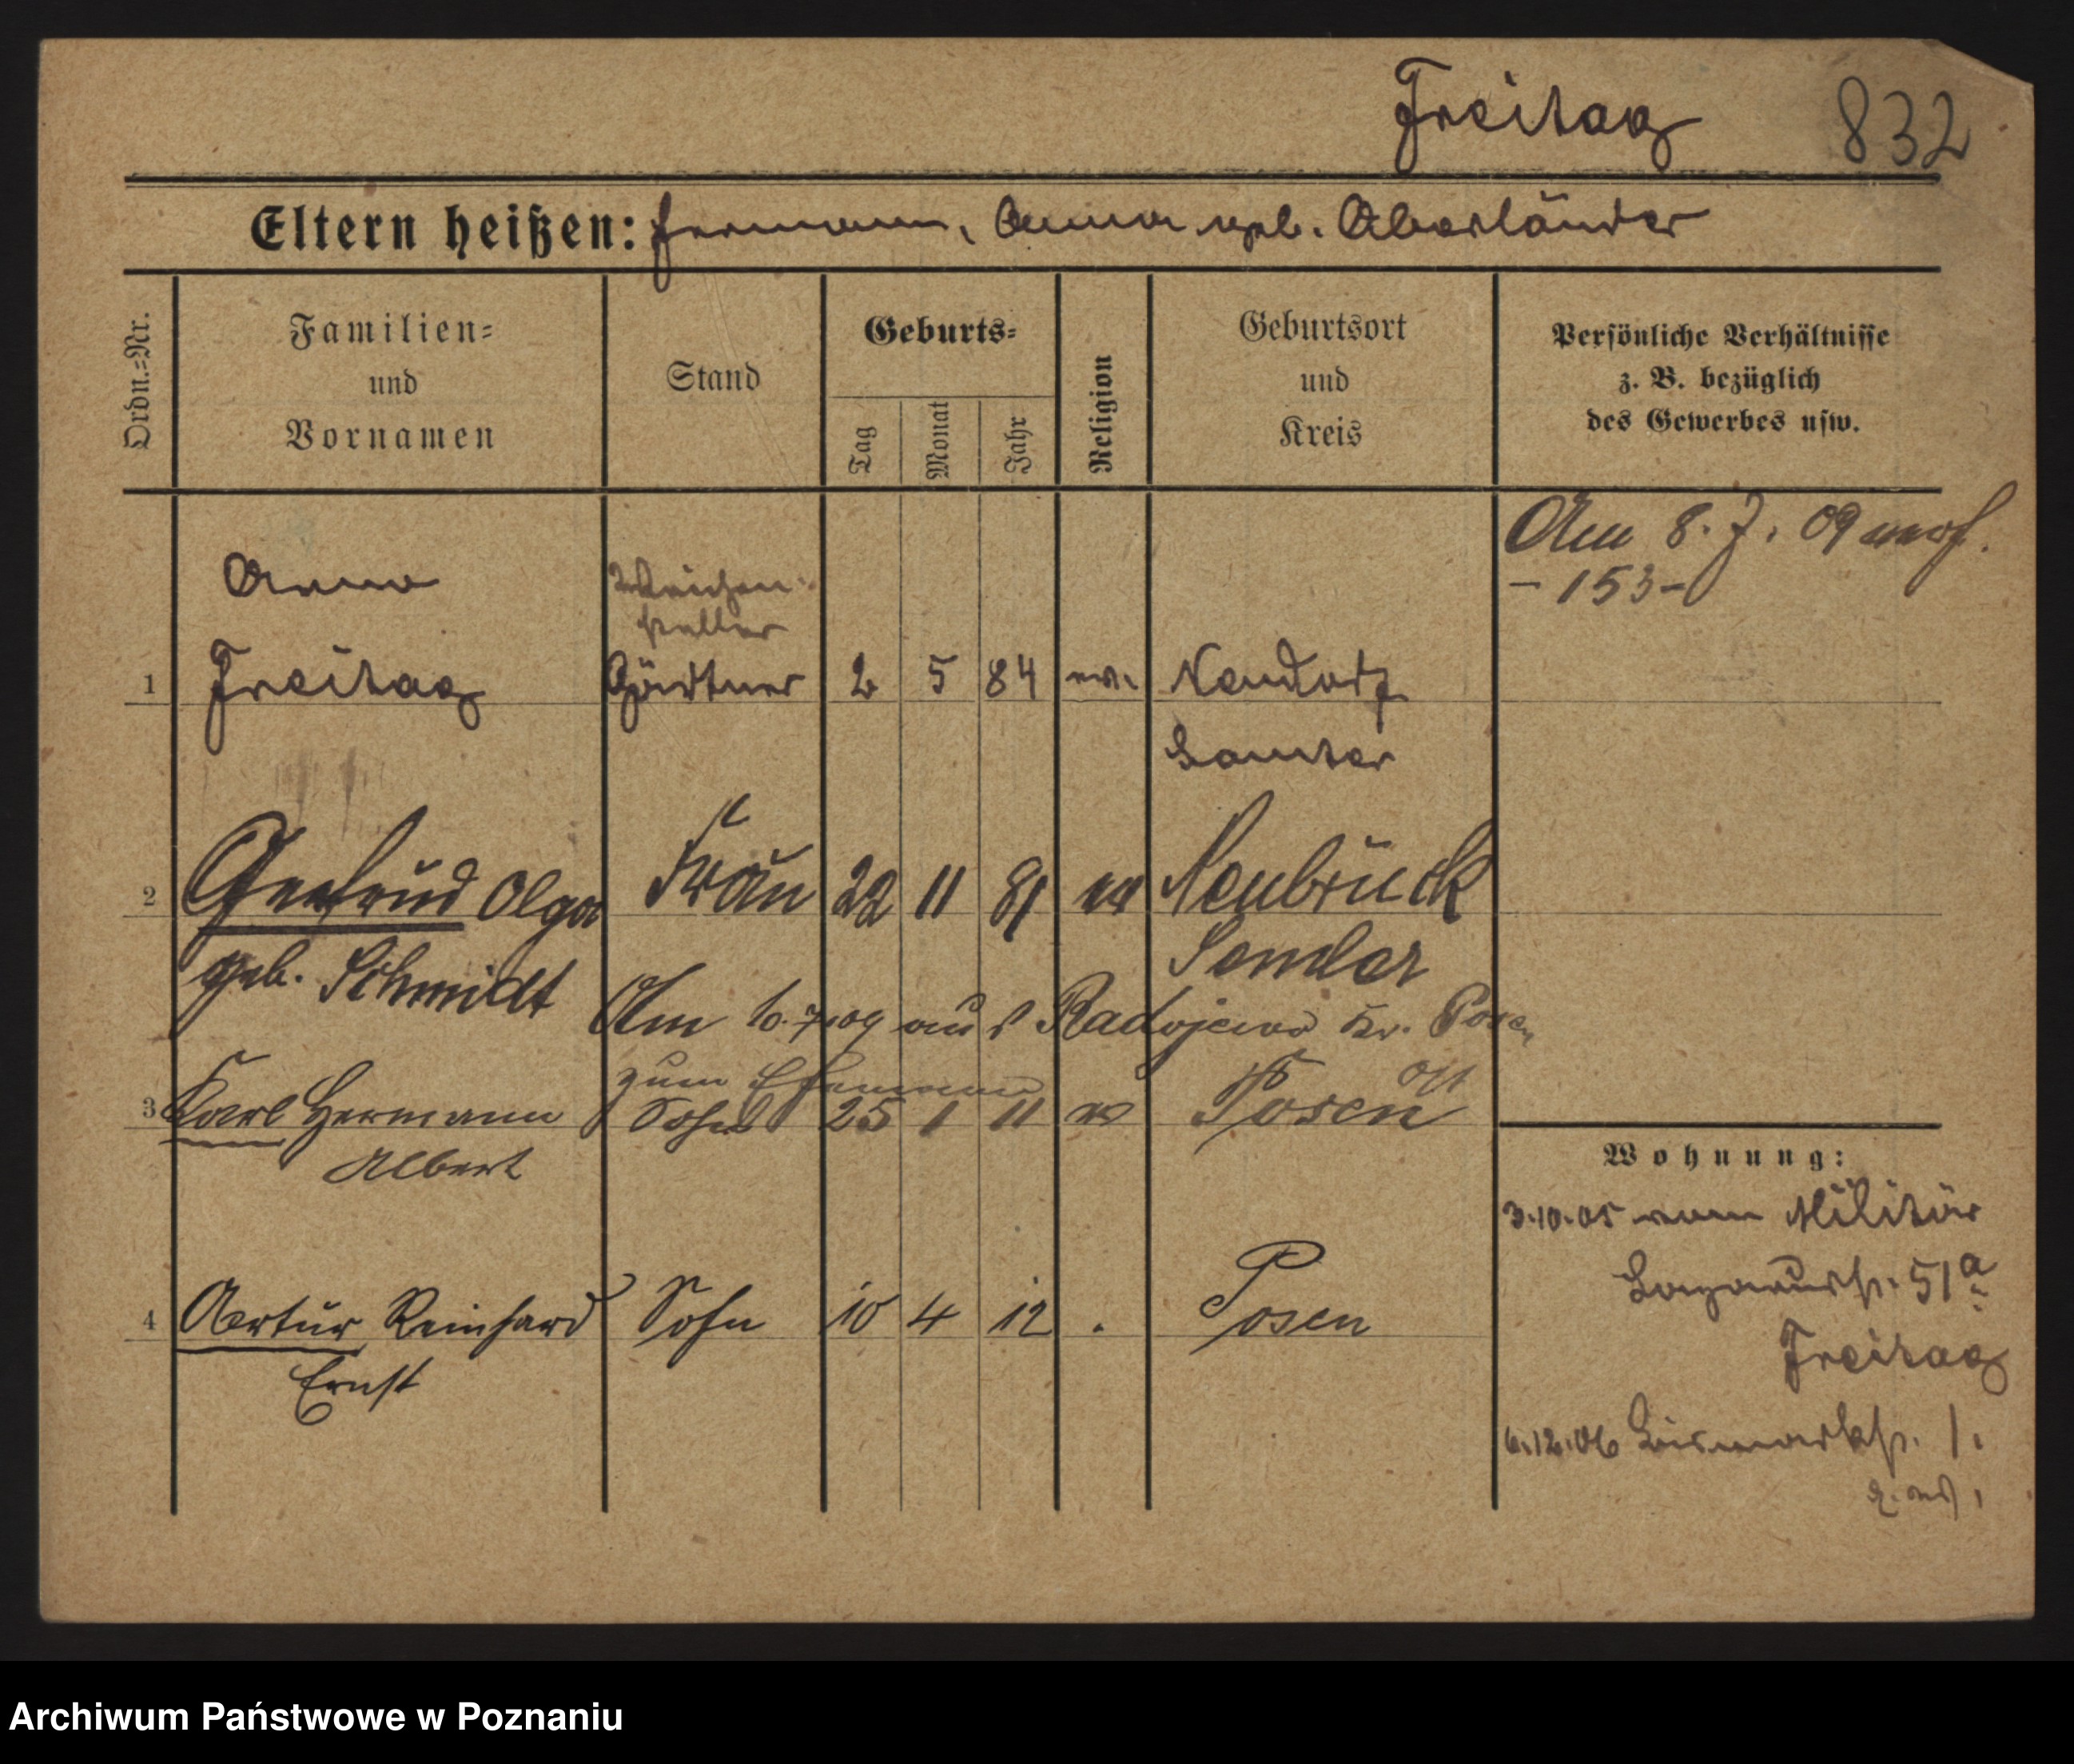 Freitag 832
Eltern heißen: Hermann, Anna geb. Aberländer
Ordn.=Nr.
Familien=
und
Vornamen
Stand
Geburts=
Tag
Monat
Jahr
Religion
Geburtsort
und
Kreis
Persönliche Verhältnisse
z. B. bezüglich
des Gewerbes usw.
Am 8. 7. 09
- 153 -
Weichen-
steller
1 Freitag Gärtner 2 5 84 ev. Neudorf
Samter
2 Gertrud Olga Frau 22 11 81 ev Neubrück
geb. Schmidt Samter
Am 10.7.09 aus Radojewo Kr. Posen
zum Ehemann
3 Karl Hermann Sohn 25 1 11 ev Posen
Albert
4 Artur Reinhard Sohn 10 4 12 . Posen
Ernst
Wohnung:
3.10.05 vom Militär
51a
Freitag
6.12.06 Bismarckstr. 1.
Archiwum Państwowe w Poznaniu